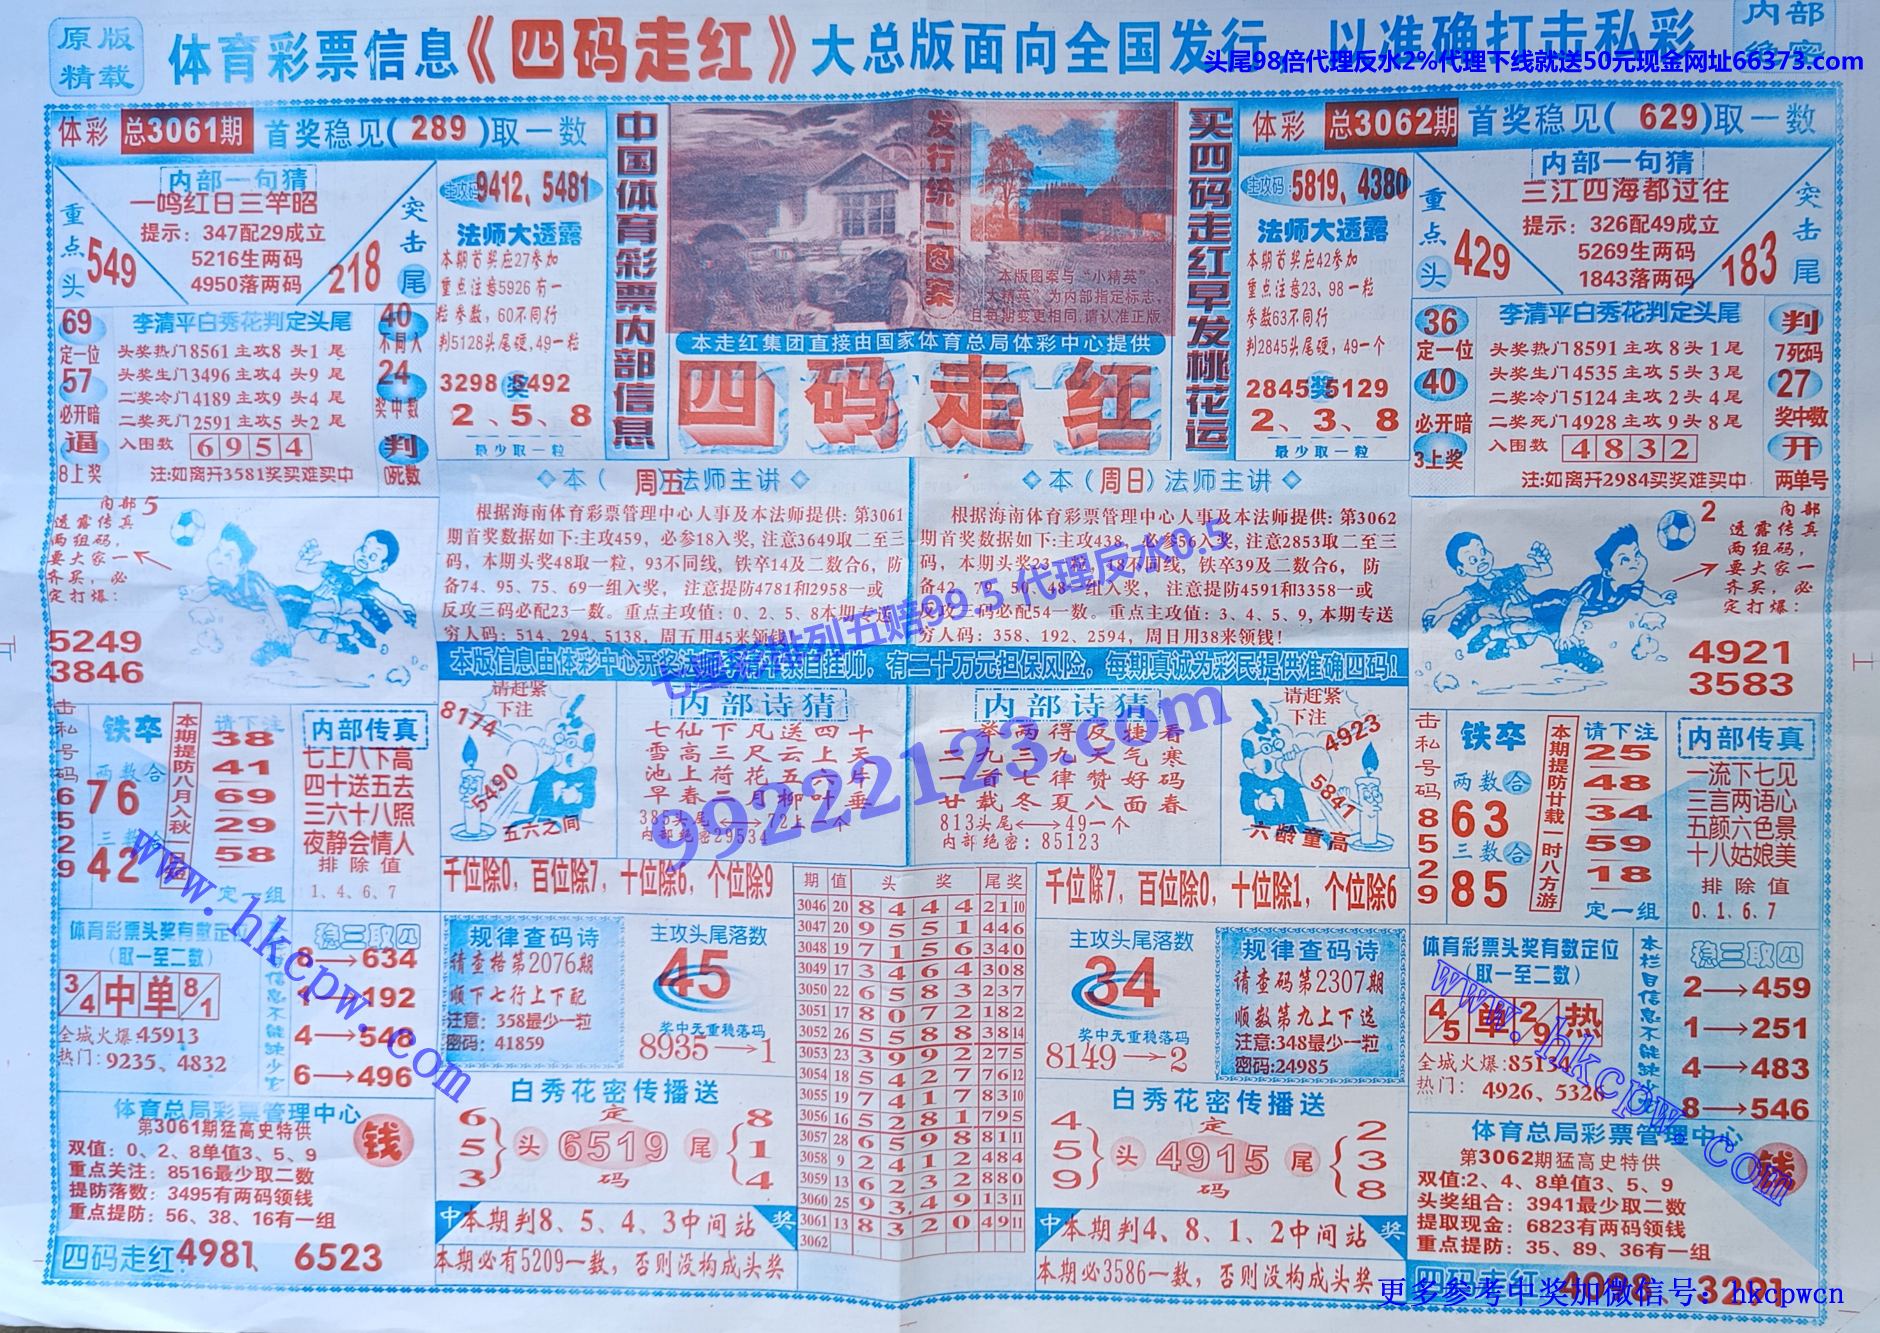 原版
精载
体育彩票信息《四码走红》大总版面向全国发行，以准确打击私彩
内部
头尾98倍代理反水2%代理下线就送50元现金网址66373.com
体彩 总3061期 首奖稳见(289)取一数
内部一句猜
一鸣红日三竿昭
提示：347配29成立
5216生两码
4950落两码
重点头
549
突击尾
218
主攻码:9412、5481
法师大透露
本期首奖应27参加
重点注意5926有一
粒参数，60不同行
判5128头尾硬,49一粒
3298奖5492
2、5、8
最少取一粒
69
定一位
57
必开暗
逼
8上奖
李清平白秀花判定头尾
头奖热门8561主攻8头1尾
头奖生门3496主攻4头9尾
二奖冷门4189主攻9头4尾
二奖死门2591主攻5头2尾
入围数 6954
注:如离开3581奖买难买中
40
不同人
24
奖中数
判
0死数
中国体育彩票内部信息
发行统一图案
本版图案与“小精英”
大精英”为内部指定标志，
且每期变更相同,请认准正版
本走红集团直接由国家体育总局体彩中心提供
四码走红
买四码走红早发桃花运
体彩 总3062期 首奖稳见(629)取一数
主攻码:5819、4380
法师大透露
本期首奖应42参加
重点注意23、98一粒
参数63不同行
判2845头尾硬,49一个
2845奖5129
2、3、8
最少取一粒
内部一句猜
三江四海都过往
提示：326配49成立
5269生两码
1843落两码
重点头
429
突击尾
183
36
定一位
40
必开暗
3上奖
李清平白秀花判定头尾
头奖热门8591主攻8头1尾
头奖生门4535主攻5头3尾
二奖冷门5124主攻2头4尾
二奖死门4928主攻9头8尾
入围数 4832
注:如离开2984买奖难买中
判
7死码
27
奖中数
开
两单号
内部5
透露传真
两组码，
要大家一
齐买，必
定打爆：
5249
3846
◇本(周五)法师主讲◇
根据海南体育彩票管理中心人事及本法师提供:第3061
期首奖数据如下:主攻459，必参18入奖,注意3649取二至三
码，本期头奖48取一粒，93不同线，铁卒14及二数合6，防
备74、95、75、69一组入奖，注意提防4781和2958一或
反攻三码必配23一数。重点主攻值：0、2、5、8本期专送
穷人码：514、294、5138，周五用45来领钱！
◇本(周日)法师主讲◇
根据海南体育彩票管理中心人事及本法师提供:第3062
期首奖数据如下:主攻438，必参56入奖,注意2853取二至三
码，本期头奖23一粒，18不同线，铁卒39及二数合6，防
备42、79、50、48一组入奖，注意提防4591和3358一或
反攻三码必配54一数。重点主攻值：3、4、5、9,本期专送
穷人码：358、192、2594，周日用38来领钱！
本版信息由体彩中心开奖法师李清平亲自挂帅，有二十万元担保风险，每期真诚为彩民提供准确四码！
内部
2
透露传真
两组码，
要大家一
齐买，必
定打爆：
4921
3583
七星彩排列五赔99.5,代理反水0.5
99222123.com
击私号码
6
5
2
9
铁卒
两数合
76
三数合
42
本期提防八月入秋一组
请下注
38
41
69
29
58
定一组
内部传真
七上八下高
四十送五去
三六十八照
夜静会情人
排除值
1、4、6、7
请赶紧
下注
8174
5490
五六之间
内部诗猜
七仙下凡送四十
雪高三尺云上天
池上荷花五六斗
早春二月柳叶垂
385头尾⟷72上一个
内部绝密29534
内部诗猜
一举两得反捷看
三九三九天气寒
二首七律赞好码
廿载冬夏八面春
813头尾⟷49一个
内部绝密：85123
请赶紧
下注
4923
5847
六龄童高
击私号码
8
5
2
9
铁卒
两数合
63
三数合
85
本期提防廿载一时八方游
请下注
25
48
34
59
18
定一组
内部传真
一流下七见
三言两语心
五颜六色景
十八姑娘美
排除值
0、1、6、7
千位除0，百位除7，十位除6，个位除9
千位除7，百位除0，十位除1，个位除6
体育彩票头奖有数定位
(取一至二数)
3/4 中 单 8/1
全城火爆45913
热门：9235、4832
稳三取四
8→634
4→548
6→496
规律查码诗
请查格第2076期
顺下七行上下配
注意：358最少一粒
密码：41859
主攻头尾落数
45
奖中无重稳落码
8935→1
期 值 头 奖 尾奖
3046 20 8 4 4 4 21 10
3047 20 9 5 5 1 44 6
3048 19 7 1 5 6 34 0
3049 17 3 4 6 4 30 8
3050 22 6 5 8 3 23 7
3051 17 8 0 7 2 18 2
3052 26 5 5 8 8 38 14
3053 23 3 9 9 2 27 5
3054 18 5 4 2 7 76 12
3055 19 7 4 1 7 83 10
3056 16 5 2 8 1 79 5
3057 28 6 5 9 8 81 11
3058 9 2 4 1 2 48 4
3059 13 6 2 3 2 88 0
3060 25 9 3 4 9 13 11
3061 13 8 3 2 0 49 11
3062
主攻头尾落数
34
奖中无重稳落码
8149→2
规律查码诗
请查码第2307期
顺数第九上下选
注意:348最少一粒
密码:24985
体育彩票头奖有数定位
(取一至二数)
4/5 单 2/9 热
热门：4926、5326
本栏目信息不能缺少
稳三取四
2→459
1→251
4→483
8→546
白秀花密传播送
6
5
3
头
定
6519
码
尾
8
1
4
白秀花密传播送
4
5
9
头
定
4915
码
尾
2
3
8
体育总局彩票管理中心
第3061期猛高史特供
双值：0、2、8单值3、5、9
重点关注：8516最少取二数
提防落数：3495有两码领钱
重点提防：56、38、16有一组
钱
四码走红4981、6523
中 本期判8、5、4、3中间站 奖
本期必有5209一数，否则没构成头奖
中 本期判4、8、1、2中间站 奖
本期必3586一数，否则没构成头奖
体育总局彩票管理中心
第3062期猛高史特供
双值:2、4、8单值3、5、9
头奖组合：3941最少取二数
提取现金：6823有两码领钱
重点提防：35、89、36有一组
钱
四码走红 4098、3291
更多参考中奖加微信号：hkcpwcn
www.hkcpw.com
www.hkcpw.com